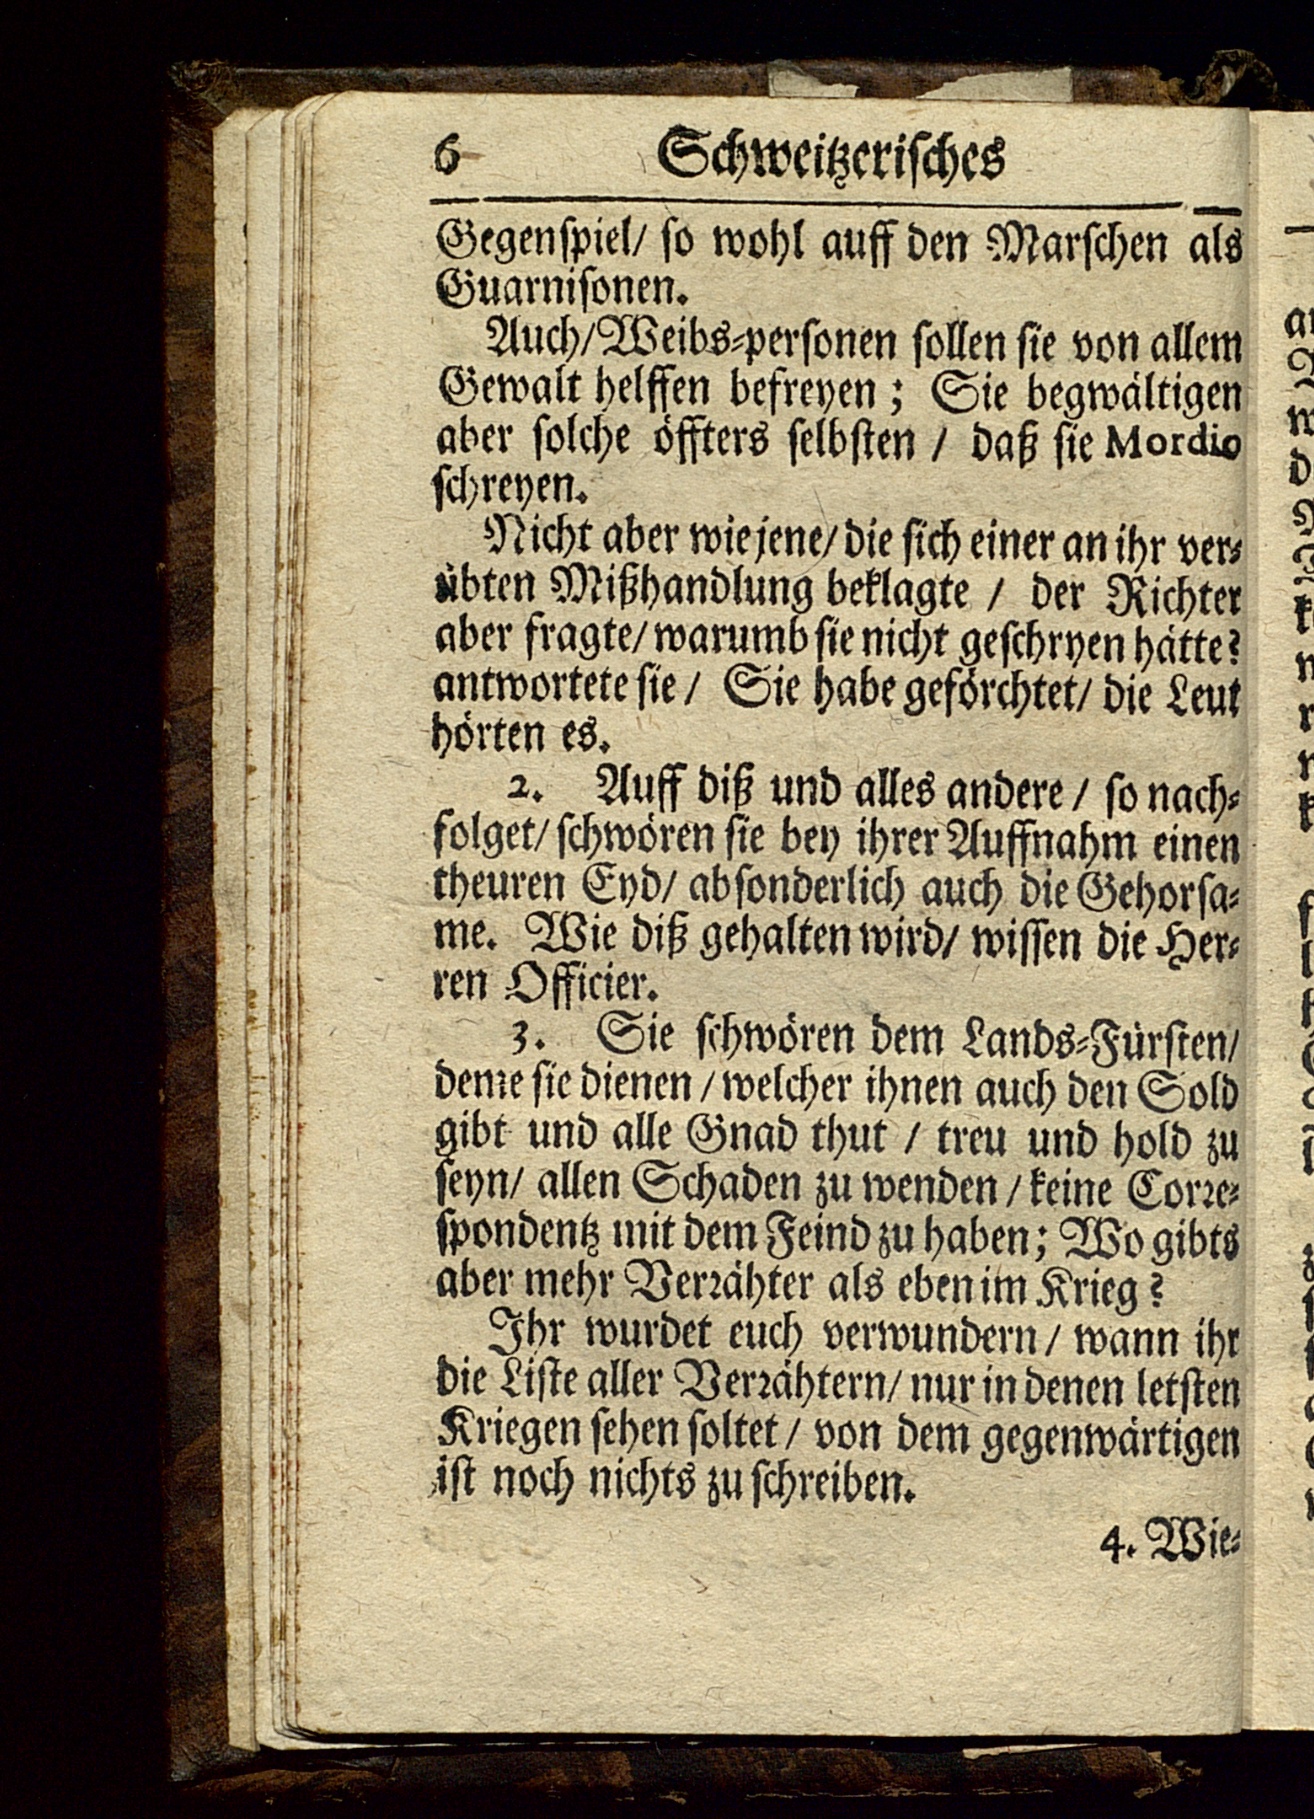 6 Schweitzerisches
Gegenspiel/ so wohl auff den Marschen als
Guarnisonen.
Auch/Weibs-personen sollen sie von allem
Gewalt helffen befreyen; Sie begwältigen
aber solche öffters selbsten / daß sie Mordio
schreyen.
Nicht aber wie jene/ die sich einer an ihr ver-
übten Mißhandlung beklagte / der Richter
aber fragte/ warumb sie nicht geschryen hätte?
antwortete sie / Sie habe geförchtet/ die Leut
hörten es.
2. Auff diß und alles andere / so nach-
folget/ schwören sie bey ihrer Auffnahm einen
theuren Eyd/ absonderlich auch die Gehorsa-
me. Wie diß gehalten wird/ wissen die Her-
ren Officier.
3. Sie schwören dem Lands-Fürsten/
deme sie dienen / welcher ihnen auch den Sold
gibt und alle Gnad thut / treu und hold zu
seyn/ allen Schaden zu wenden / keine Corre-
spondentz mit dem Feind zu haben; Wo gibts
aber mehr Verrähter als eben im Krieg?
Ihr wurdet euch verwundern / wann ihr
die Liste aller Verrähtern/ nur in denen letsten
Kriegen sehen soltet / von dem gegenwärtigen
ist noch nichts zu schreiben.
4. Wie-